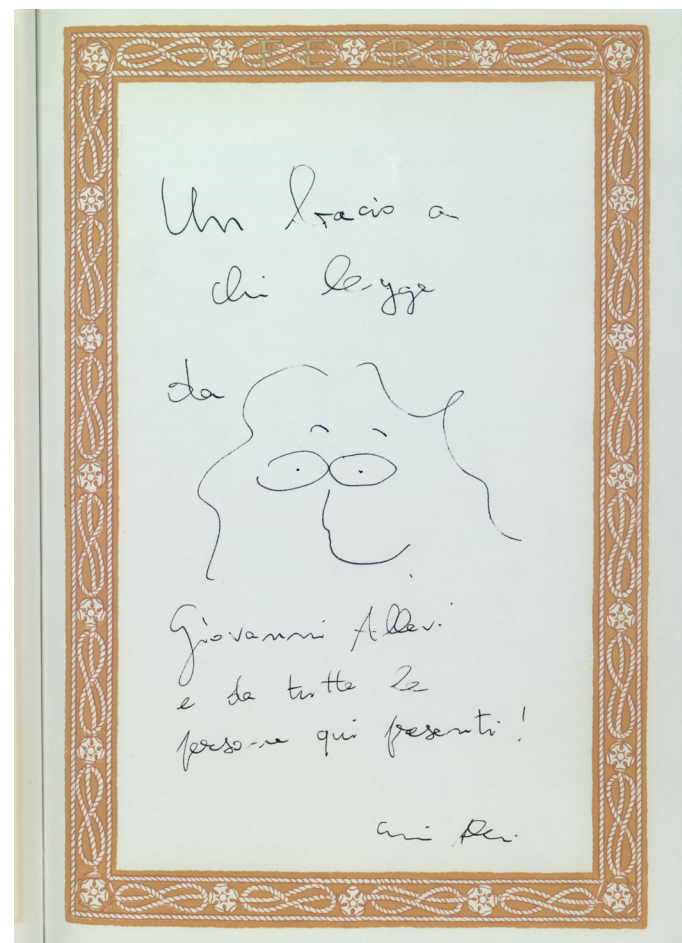 FERT
Un bacio a
chi legge
da
Giovanni Allevi
e da tutte le
persone qui presenti!